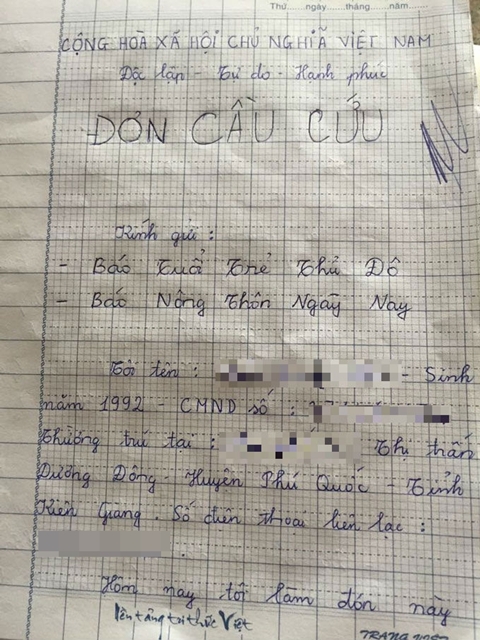 Thứ......ngày......tháng......năm......
CỘNG HÒA XÃ HỘI CHỦ NGHĨA VIỆT NAM
Độc lập - Tự do - Hạnh phúc
ĐƠN CẦU CỨU
Kính gửi :
- Báo Tuổi Trẻ Thủ Đô
- Báo Nông Thôn Ngày Nay
Tôi tên : - Sinh
năm 1992 - CMND số :
Thường trú tại : Thị trấn
Dương Đông - Huyện Phú Quốc - Tỉnh
Kiên Giang. Số điện thoại liên lạc :
Hôm nay tôi làm đơn này
nền tảng tri thức Việt